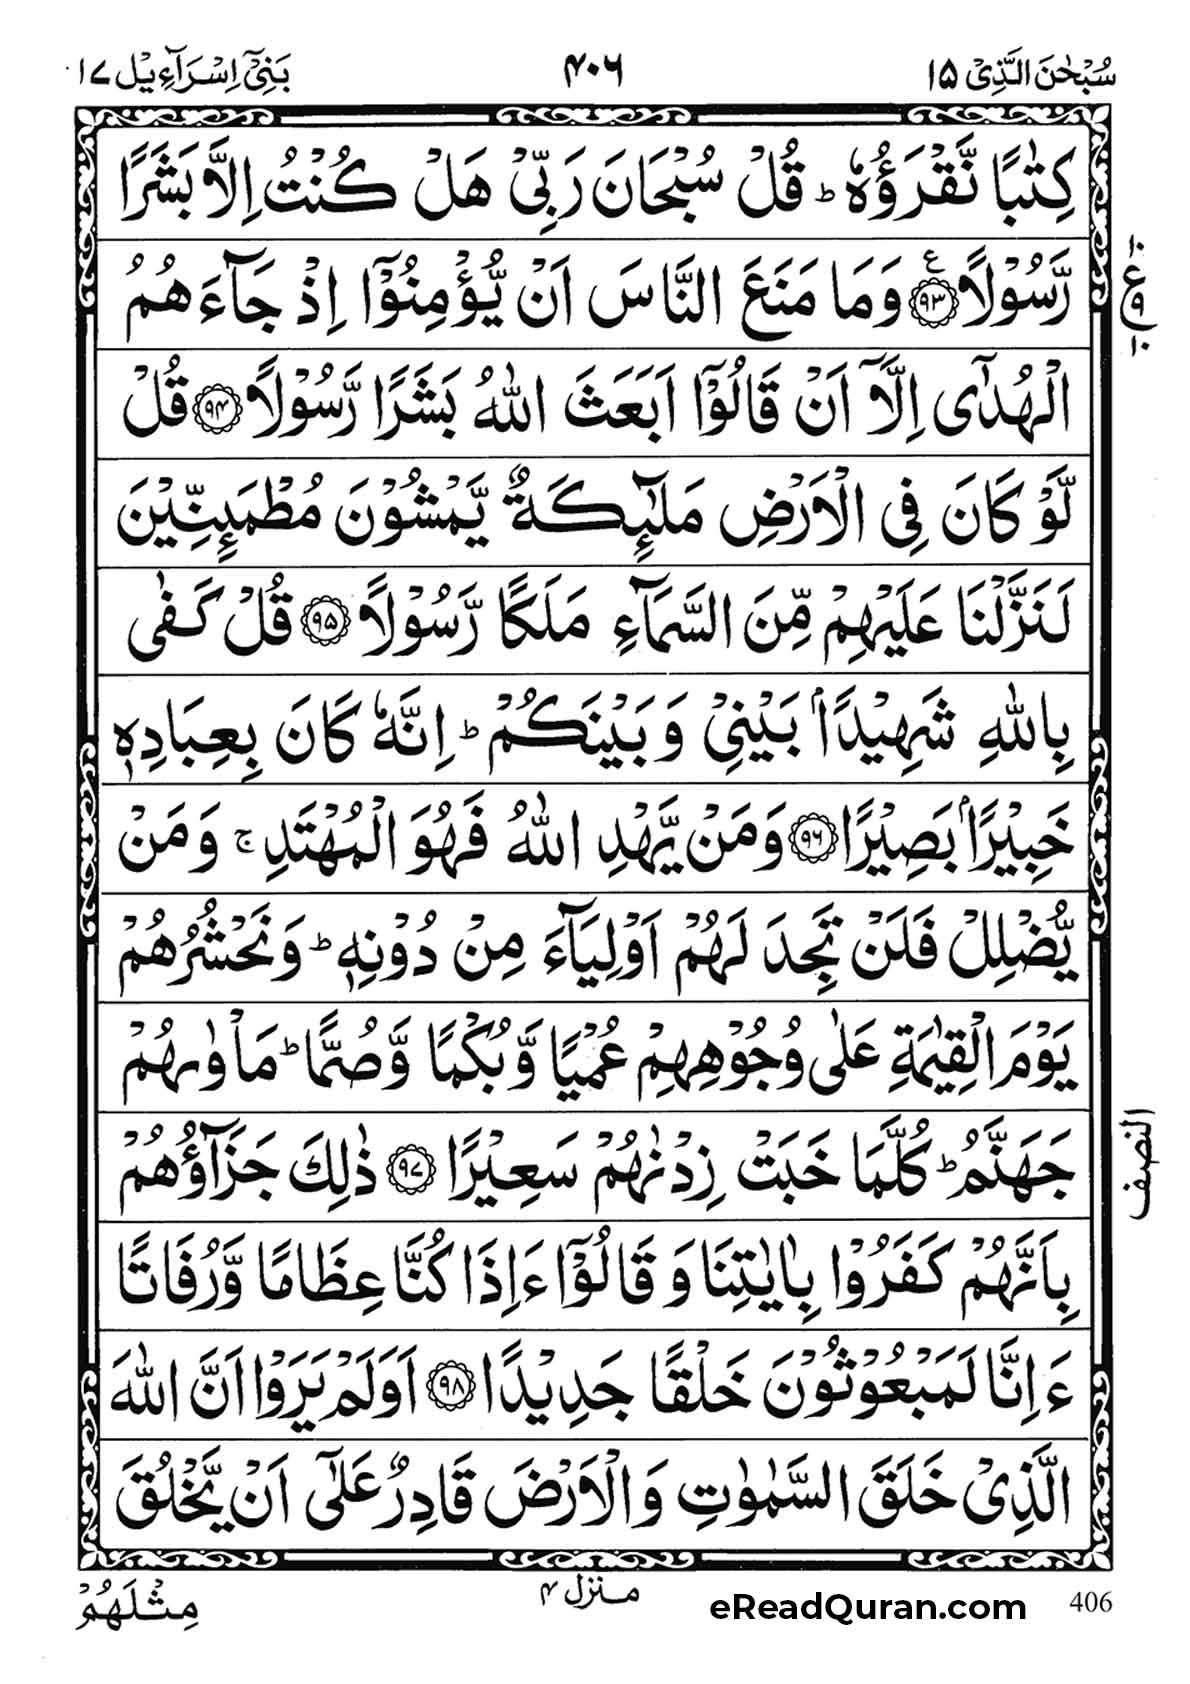 سُبْحٰنَ الَّذِىْ ١٥
٤٠٦
بَنِىْٓ اِسْرَآءِيْل ١٧
كِتٰبًا نَّقْرَؤُهٗ ؕ قُلْ سُبْحَانَ رَبِّىْ هَلْ كُنْتُ اِلَّا بَشَرًا
رَّسُوْلًا ﴿٩٣﴾ ع وَمَا مَنَعَ النَّاسَ اَنْ يُّؤْمِنُوْٓا اِذْ جَآءَهُمُ
الْهُدٰٓى اِلَّآ اَنْ قَالُوْٓا اَبَعَثَ اللّٰهُ بَشَرًا رَّسُوْلًا ﴿٩٤﴾ قُلْ
لَّوْ كَانَ فِى الْاَرْضِ مَلٰٓئِكَةٌ يَّمْشُوْنَ مُطْمَئِنِّيْنَ
لَنَزَّلْنَا عَلَيْهِمْ مِّنَ السَّمَآءِ مَلَكًا رَّسُوْلًا ﴿٩٥﴾ قُلْ كَفٰى
بِاللّٰهِ شَهِيْدًاۢ بَيْنِىْ وَبَيْنَكُمْ ؕ اِنَّهٗ كَانَ بِعِبَادِهٖ
خَبِيْرًاۢ بَصِيْرًا ﴿٩٦﴾ وَمَنْ يَّهْدِ اللّٰهُ فَهُوَ الْمُهْتَدِ ۚ وَمَنْ
يُّضْلِلْ فَلَنْ تَجِدَ لَهُمْ اَوْلِيَآءَ مِنْ دُوْنِهٖ ؕ وَنَحْشُرُهُمْ
يَوْمَ الْقِيٰمَةِ عَلٰى وُجُوْهِهِمْ عُمْيًا وَّبُكْمًا وَّصُمًّا ؕ مَاْوٰىهُمْ
جَهَنَّمُ ؕ كُلَّمَا خَبَتْ زِدْنٰهُمْ سَعِيْرًا ﴿٩٧﴾ ذٰلِكَ جَزَآؤُهُمْ
بِاَنَّهُمْ كَفَرُوْا بِاٰيٰتِنَا وَقَالُوْٓا ءَاِذَا كُنَّا عِظَامًا وَّرُفَاتًا
ءَاِنَّا لَمَبْعُوْثُوْنَ خَلْقًا جَدِيْدًا ﴿٩٨﴾ اَوَلَمْ يَرَوْا اَنَّ اللّٰهَ
الَّذِىْ خَلَقَ السَّمٰوٰتِ وَالْاَرْضَ قَادِرٌ عَلٰٓى اَنْ يَّخْلُقَ
النصف
مِثْلَهُمْ
منزل ٤
eReadQuran.com
406